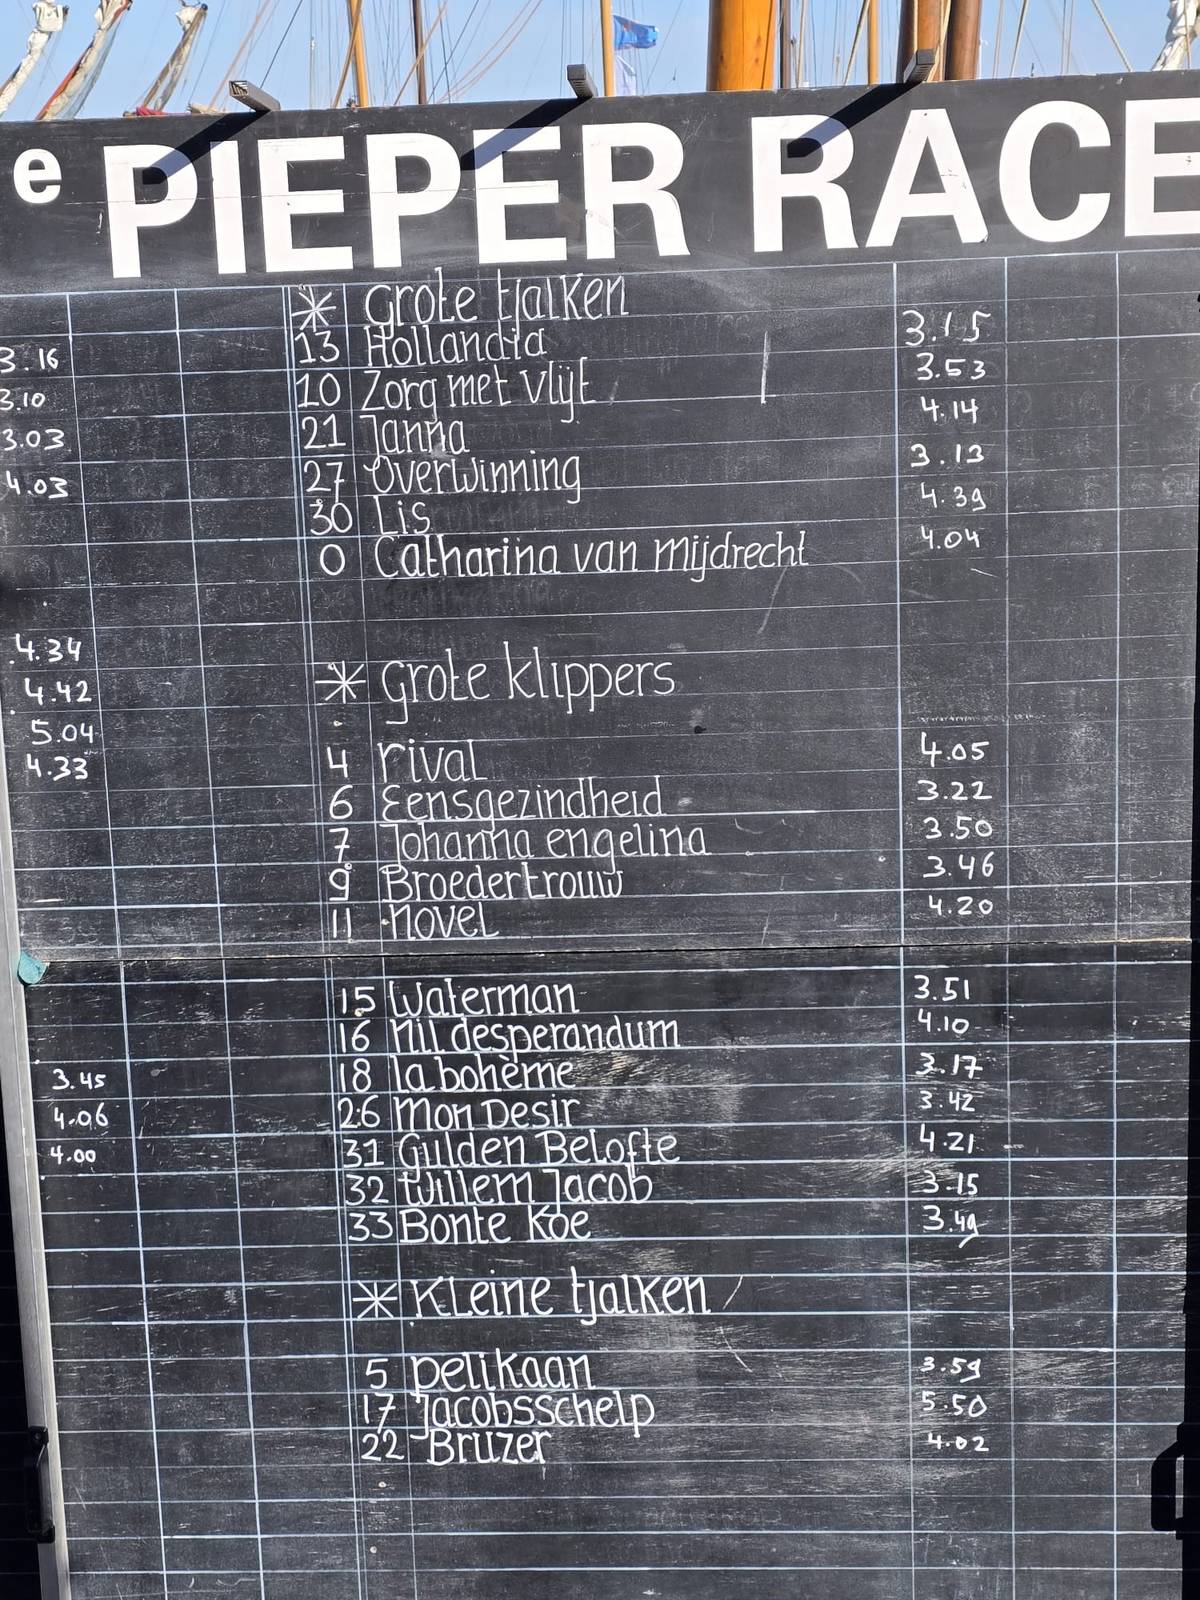 e PIEPER RACE
* Grote tjalken
3.16 13 Hollandia 3.15
3.10 10 Zorg met Vlijt 3.53
3.03 21 Janna 4.14
4.03 27 Overwinning 3.13
30 Lis 4.39
0 Catharina van Mijdrecht 4.04
4.34
4.42 * Grote klippers
5.04
4.33 4 rival 4.05
6 Eensgezindheid 3.22
7 Johanna engelina 3.50
9 Broedertrouw 3.46
11 Novel 4.20
15 Waterman 3.51
16 Nil desperandum 4.10
3.45 18 la bohème 3.17
4.06 26 Mon Desir 3.42
4.00 31 Gulden Belofte 4.21
32 Willem Jacob 3.15
33 Bonte Koe 3.49
* Kleine tjalken
5 Pelikaan 3.59
17 Jacobsschelp 5.50
22 Bruzer 4.02